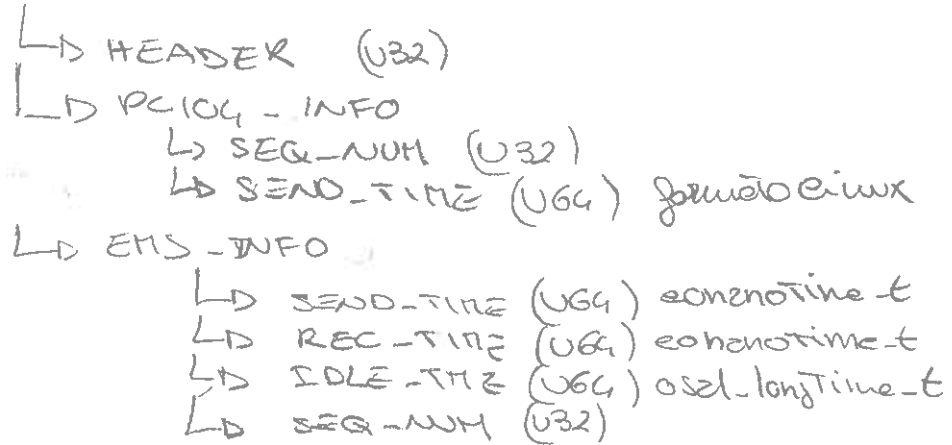 HEADER (U32)
PC104 - INFO
SEQ_NUM (U32)
SEND_TIME (U64) formato linux
EMS - INFO
SEND_TIME (U64) eonanoTime_t
REC_TIME (U64) eonanotime_t
IDLE_TIME (U64) osal_longTime_t
SEQ_NUM (U32)